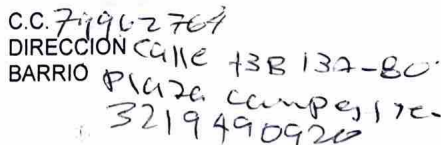 C.C. 79962764
DIRECCIÓN Calle 13B 137-80
BARRIO Plaza campestre
3219490920